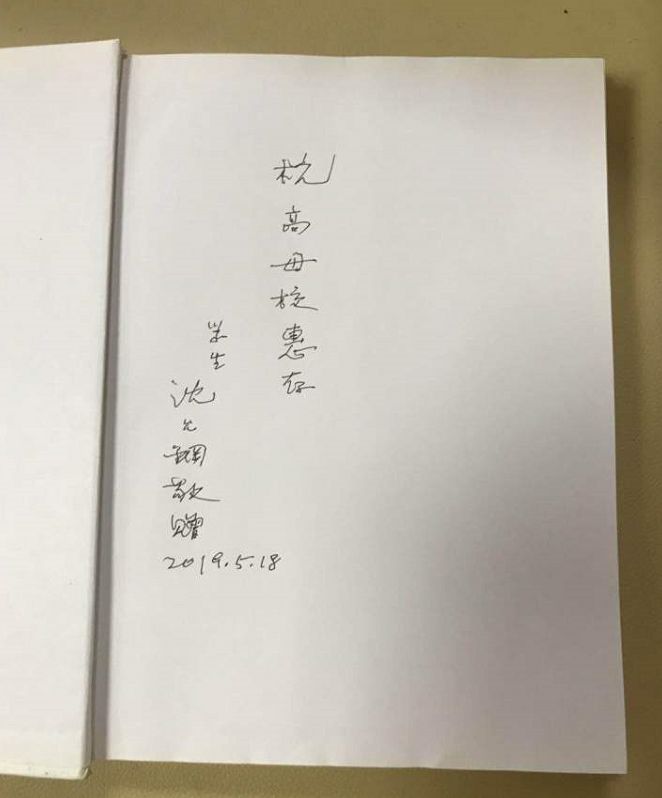 杭高母校惠存
学生
沈允钢敬赠
2019.5.18